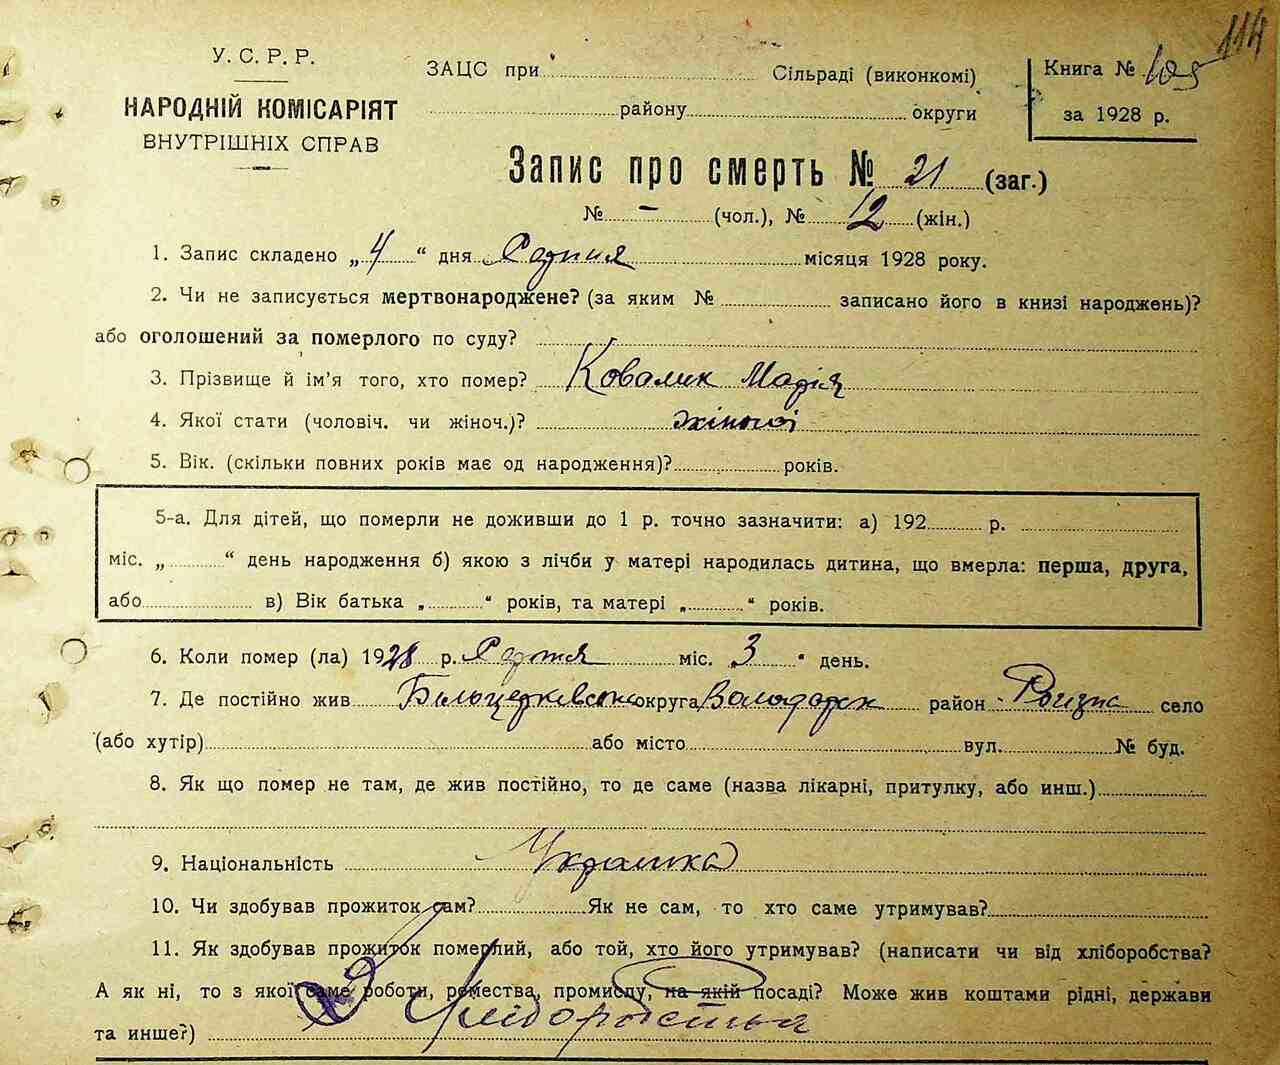 114
У. С. Р. Р.
НАРОДНІЙ КОМІСАРІЯТ
ВНУТРІШНІХ СПРАВ
ЗАЦС при Сільраді (виконкомі)
району округи
Книга № 105
за 1928 р.
Запис про смерть № 21 (заг.)
№ - (чол.), № 12 (жін.)
1. Запис складено „4“ дня місяця 1928 року.
2. Чи не записується мертвонароджене? (за яким № записано його в книзі народжень)?
або оголошений за померлого по суду?
3. Прізвище й ім'я того, хто помер? Ковалик Марія
4. Якої стати (чоловіч. чи жіноч.)? жіночої
5. Вік. (скільки повних років має од народження)? років.
5-а. Для дітей, що померли не доживши до 1 р. точно зазначити: а) 192 р.
міс. „ “ день народження б) якою з лічби у матері народилась дитина, що вмерла: перша, друга,
або в) Вік батька „ “ років, та матері „ “ років.
6. Коли помер (ла) 1928 р. міс. „3“ день.
7. Де постійно жив Білоцерківська округа Володарськ район Рогізна село
(або хутір) або місто вул. № буд.
8. Як що помер не там, де жив постійно, то де саме (назва лікарні, притулку, або инш.)
9. Національність Українка
10. Чи здобував прожиток сам? Як не сам, то хто саме утримував?
11. Як здобував прожиток померлий, або той, хто його утримував? (написати чи від хліборобства?
А як ні, то з якої саме роботи, ремества, промислу, на якій посаді? Може жив коштами рідні, держави
та инше?) Хліборобством